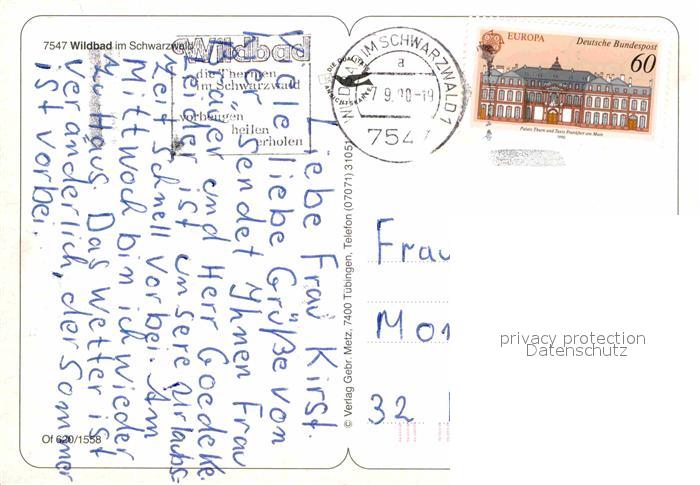 7547 Wildbad im Schwarzwald
Wildbad
die Thermen
im Schwarzwald
vorbeugen
heilen
erholen
DIE QUALITÄTS
ANSICHTSKARTE
WILDBAD IM SCHWARZWALD 1
a
9.90-19
754
EUROPA
Deutsche Bundespost
60
Palais Thurn und Taxis Frankfurt am Main
1990
Liebe Frau Kirst.
Viele liebe Grüße von
hier sendet Ihnen Frau
und Herr Goedeke.
Leider ist unsere Urlaubs-
zeit schnell vorbei. Am
Mittwoch bin ich wieder
zu Haus. Das Wetter ist
veränderlich, der Sommer
ist vorbei.
© Verlag Gebr. Metz, 7400 Tübingen, Telefon (07071) 31051
Frau
Mon
32
privacy protection
Datenschutz
Of 620/1558